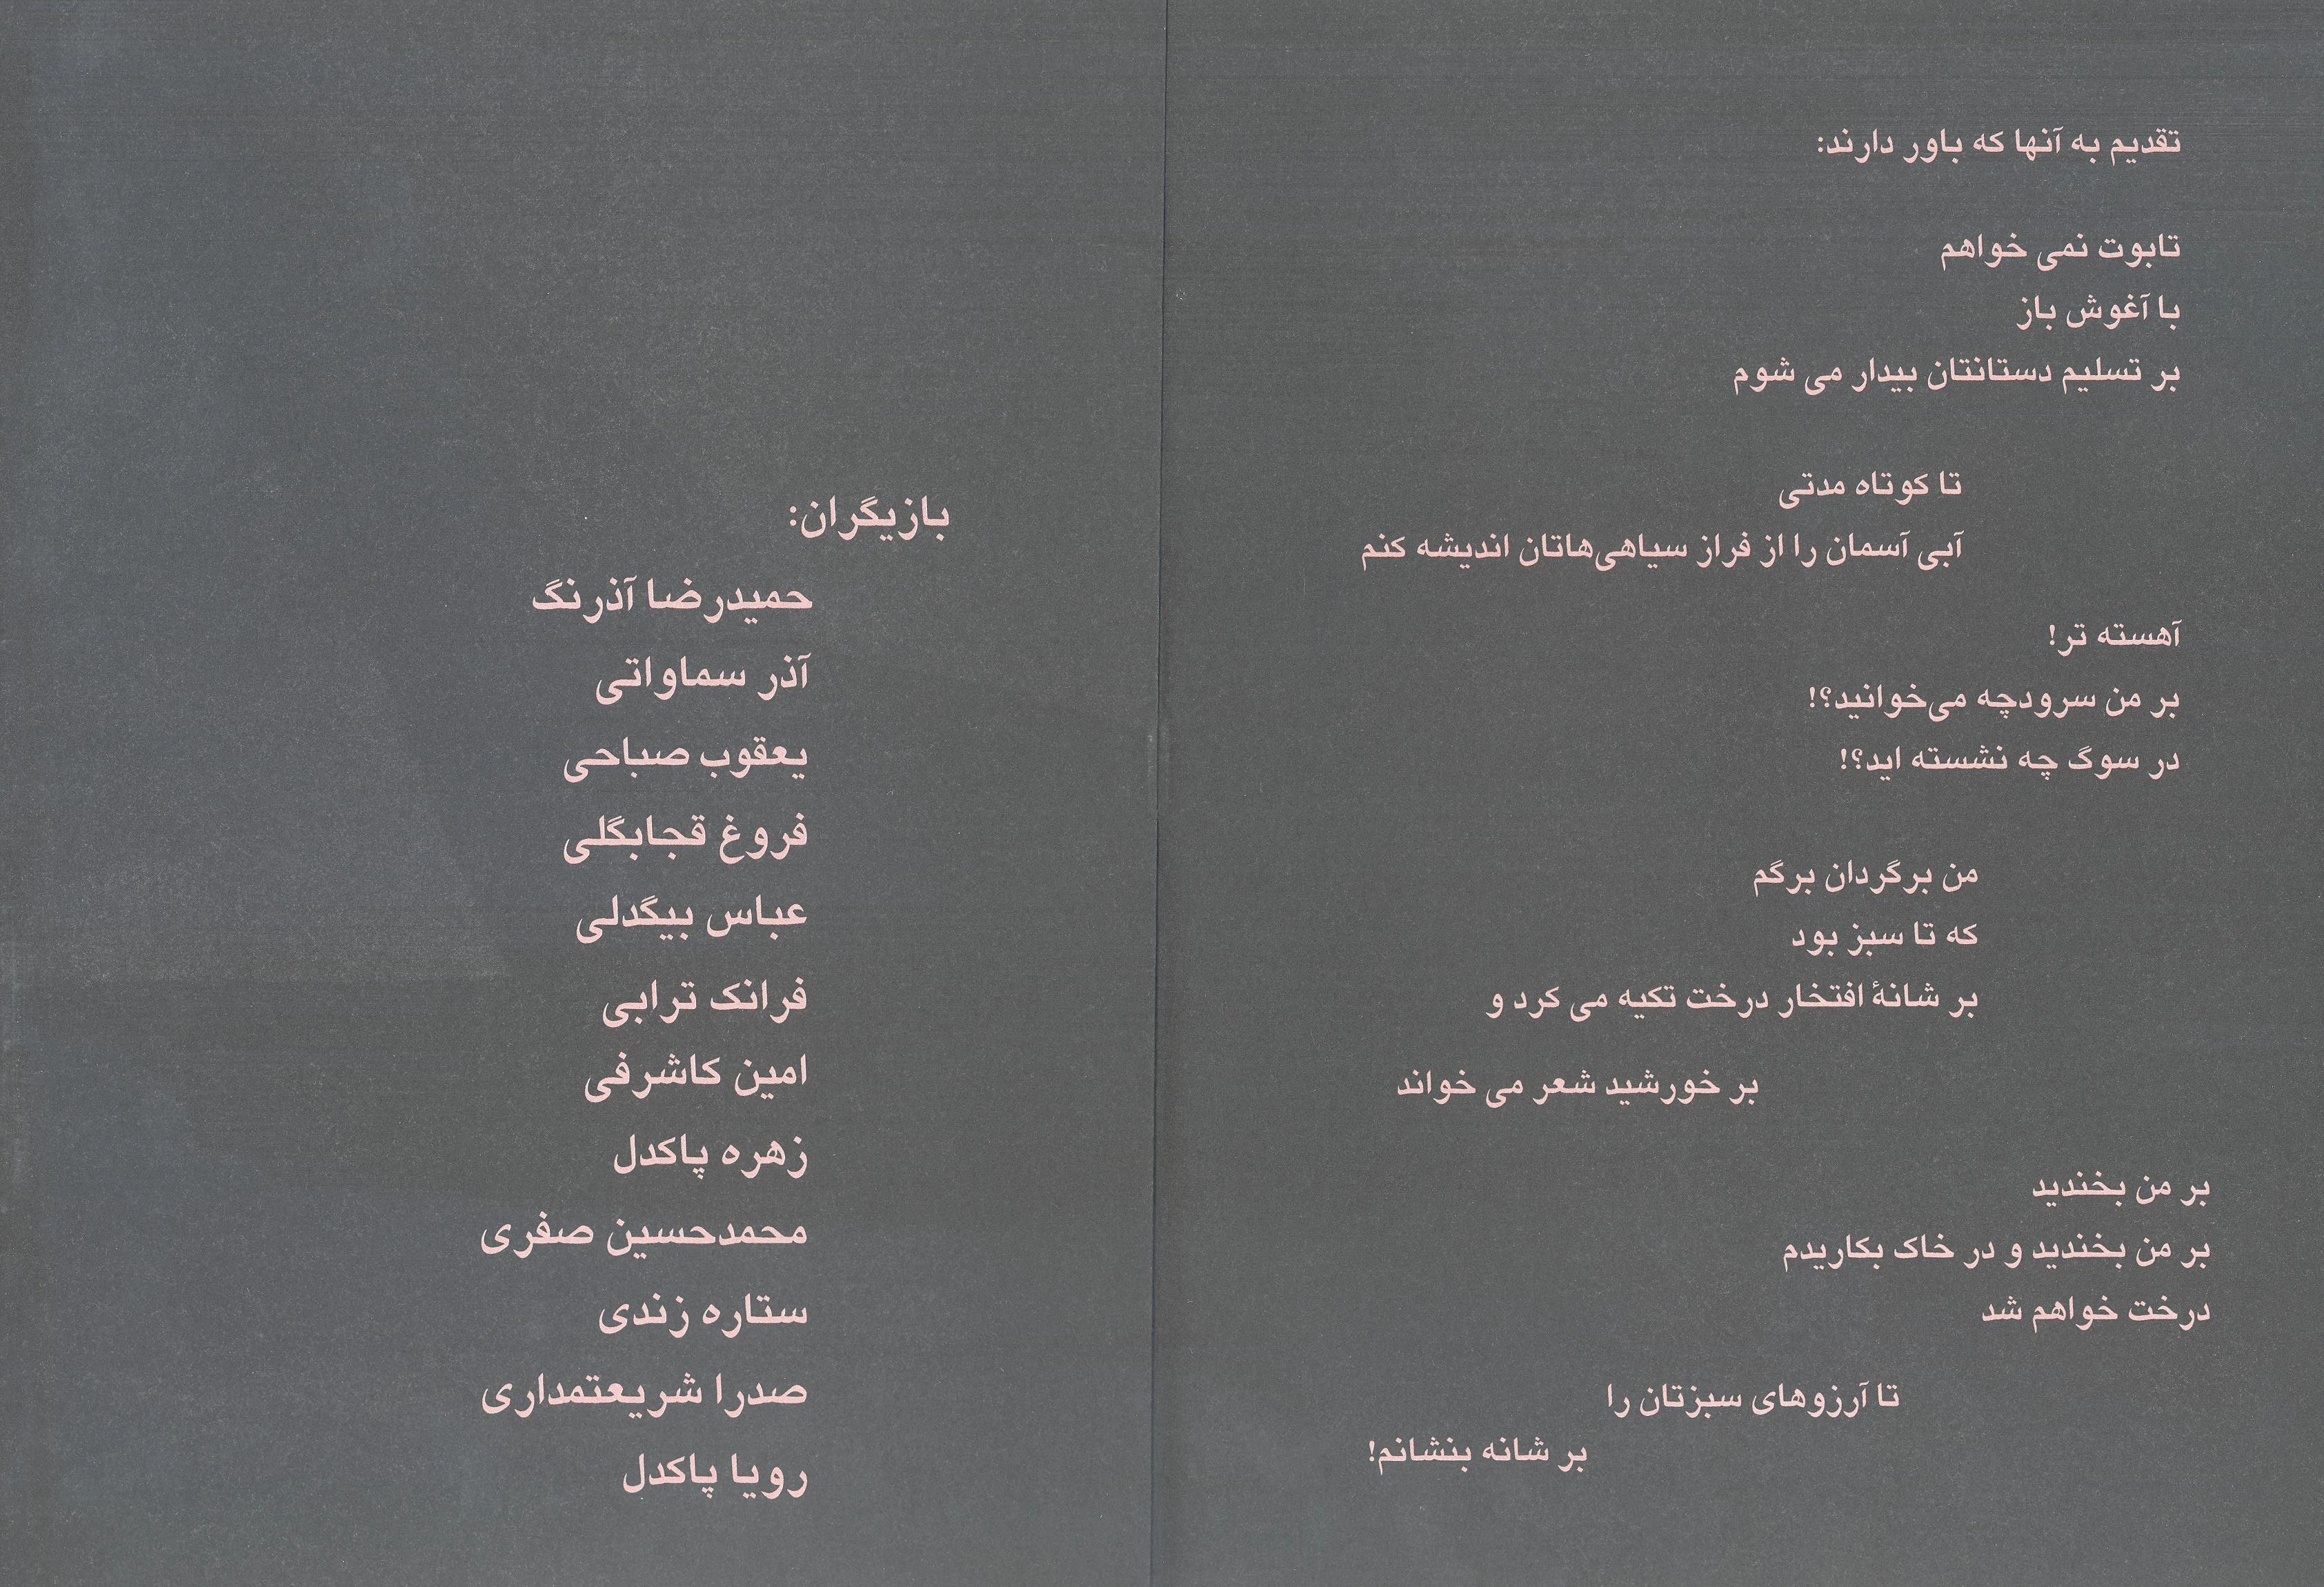 تقدیم به آنها که باور دارند:
تابوت نمی خواهم
با آغوش باز
بر تسلیم دستانتان بیدار می شوم
تا کوتاه مدتی
آبی آسمان را از فراز سیاهی‌هاتان اندیشه کنم
آهسته تر!
بر من سرودچه می‌خوانید؟!
در سوگ چه نشسته اید؟!
من برگردان برگم
که تا سبز بود
بر شانهٔ افتخار درخت تکیه می کرد و
بر خورشید شعر می خواند
بر من بخندید
بر من بخندید و در خاک بکاریدم
درخت خواهم شد
تا آرزوهای سبزتان را
بر شانه بنشانم!
بازیگران:
حمیدرضا آذرنگ
آذر سماواتی
یعقوب صباحی
فروغ قجابگلی
عباس بیگدلی
فرانک ترابی
امین کاشرفی
زهره پاکدل
محمدحسین صفری
ستاره زندی
صدرا شریعتمداری
رویا پاکدل